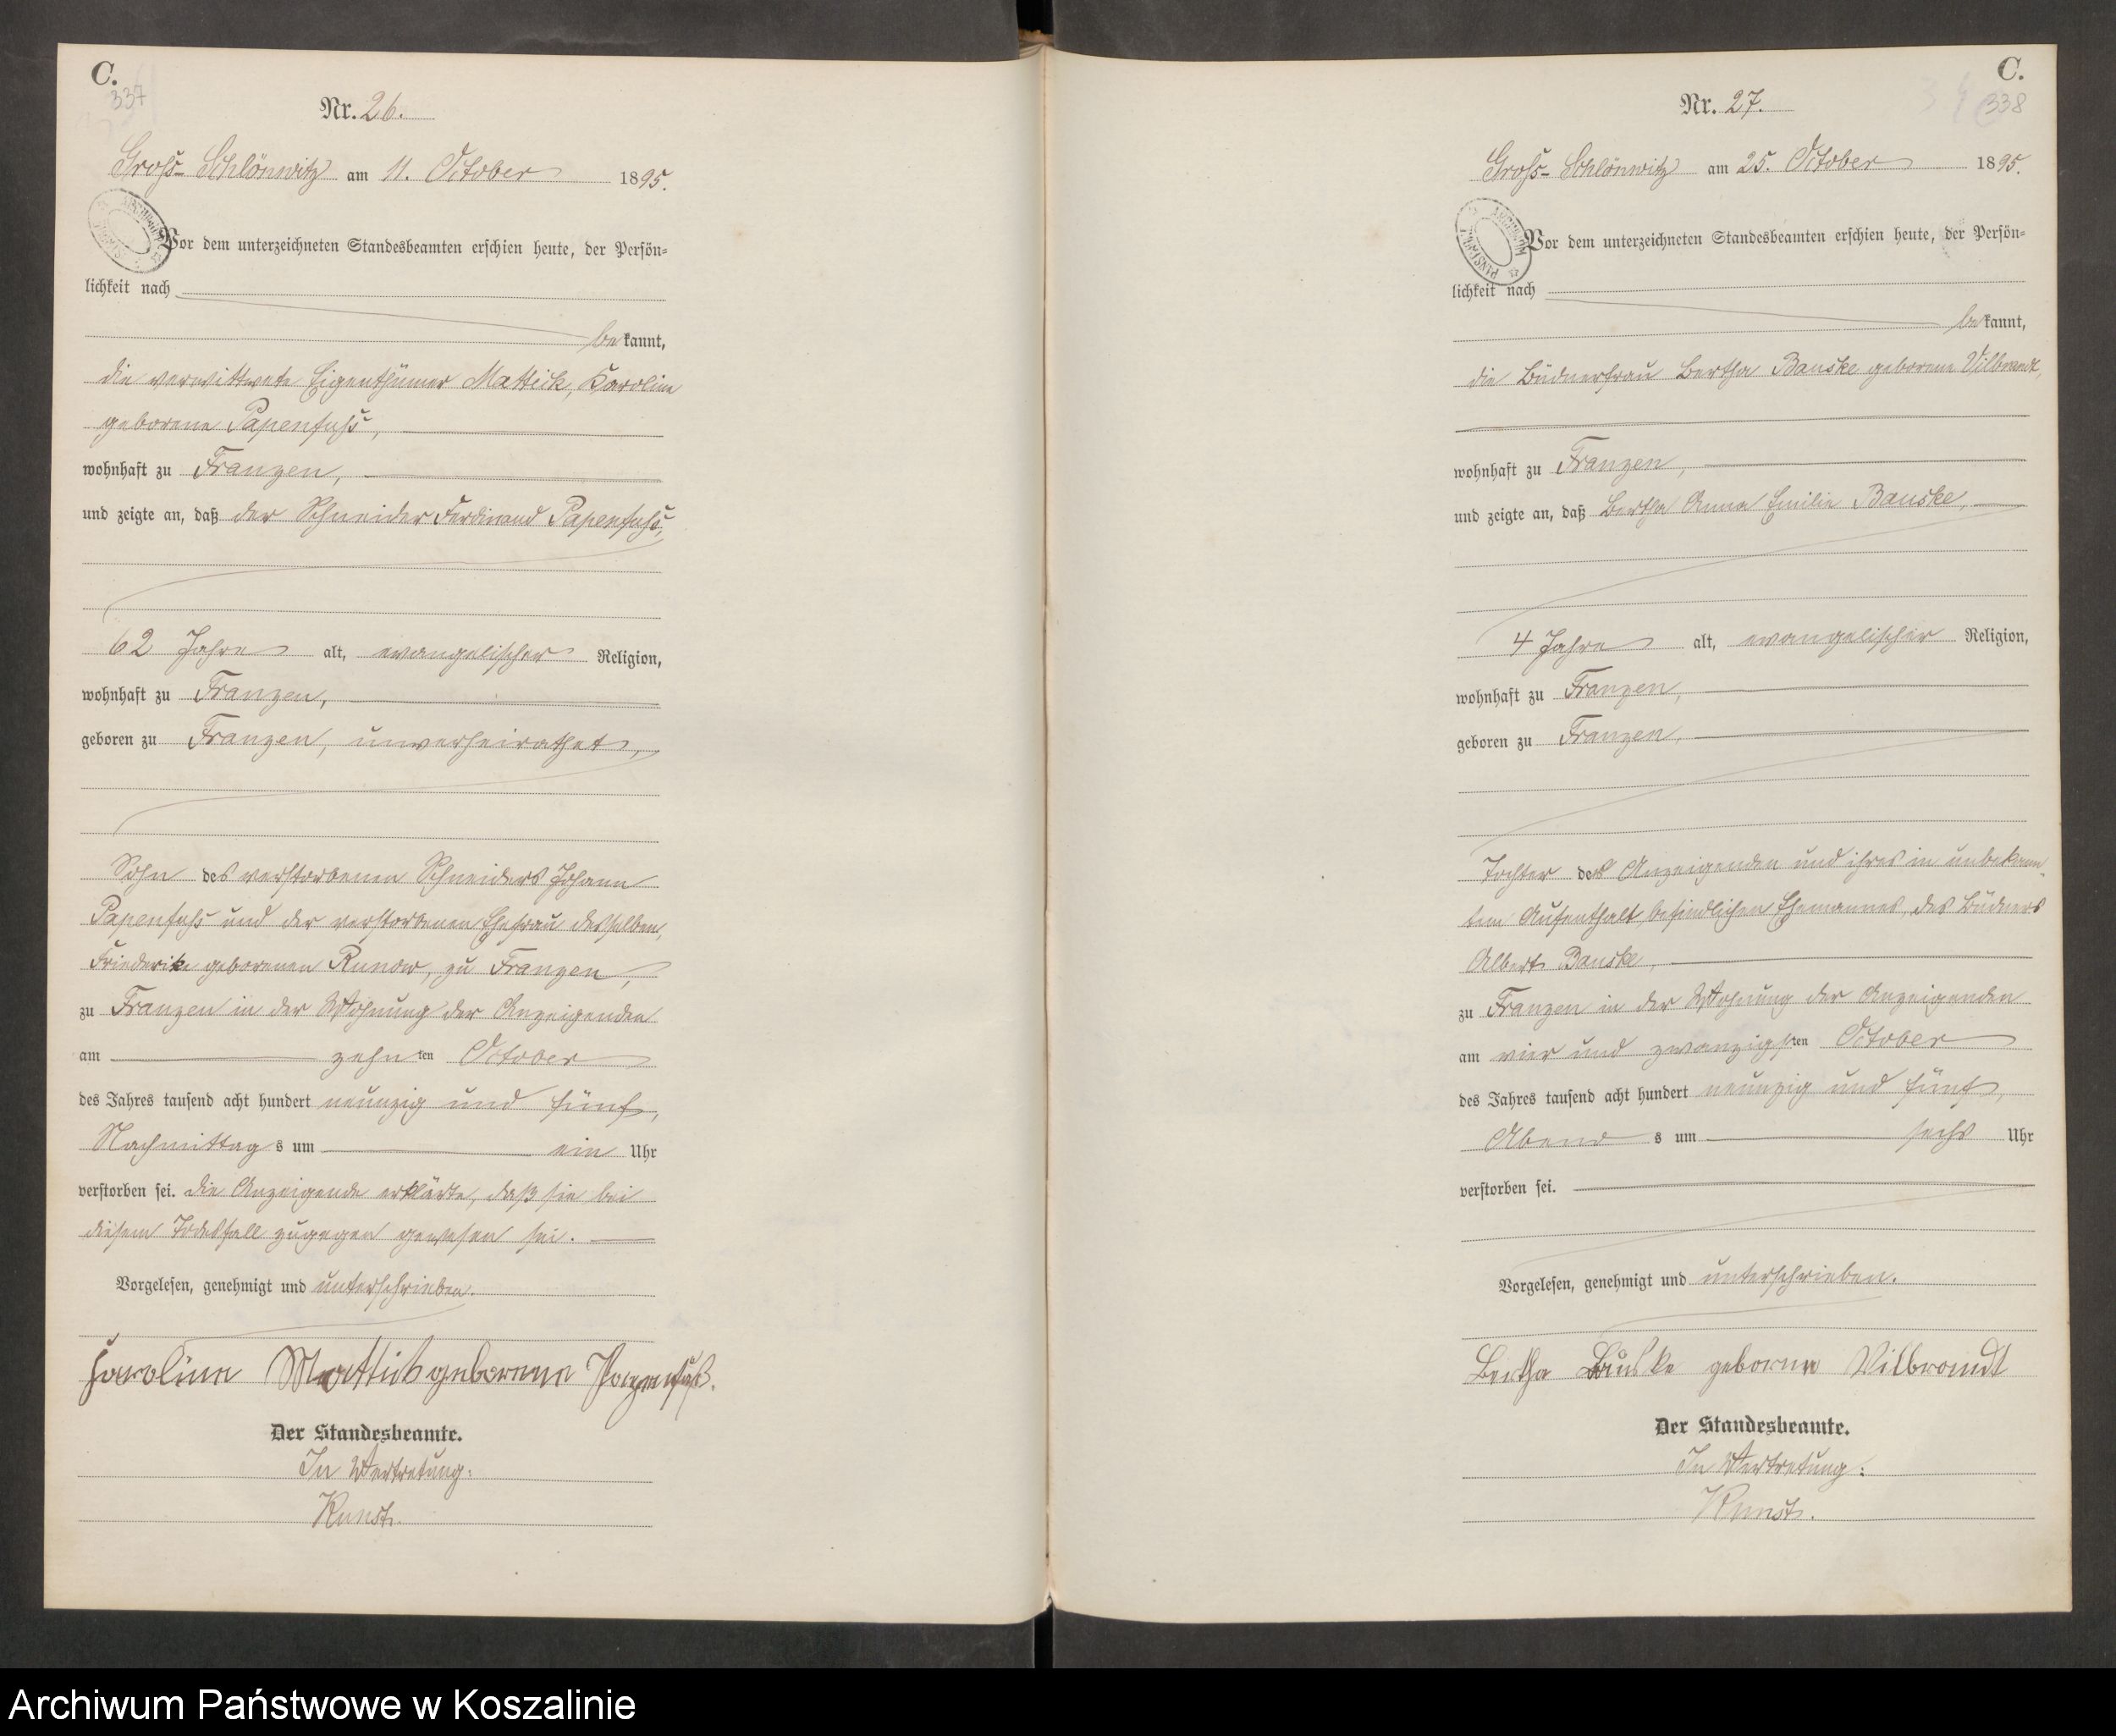 C.
337
Nr. 26.
Groß-Schlönwitz am 11. October 1895.
Vor dem unterzeichneten Standesbeamten erschien heute, der Persön-
lichkeit nach
bekannt,
die verwittwete Eigenthümer Mattick, Karoline
geborene Papenfuß,
wohnhaft zu Franzen,
und zeigte an, daß der Schneider Ferdinand Papenfuß,
62 Jahre alt, evangelischer Religion,
wohnhaft zu Franzen,
geboren zu Franzen, unverheirathet,
Sohn des verstorbenen Schneiders Johann
Papenfuß und der verstorbenen Ehefrau desselben,
Friederike geborenen Runow, zu Franzen,
zu Franzen in der Wohnung der Anzeigenden
am zehnten October
des Jahres tausend acht hundert neunzig und fünf,
Nachmittags um ein Uhr
verstorben sei. Die Anzeigende erklärte, daß sie bei
diesem Todesfall zugegen gewesen sei.
Vorgelesen, genehmigt und unterschrieben.
Karoline Mattick geborene Papenfuß.
Der Standesbeamte.
In Vertretung:
Kunst.
C.
338
Nr. 27.
Groß-Schlönwitz am 25. October 1895.
Vor dem unterzeichneten Standesbeamten erschien heute, der Persön-
lichkeit nach
bekannt,
die Büdnerfrau Bertha Bauske geborene Vilbrandt,
wohnhaft zu Franzen,
und zeigte an, daß Bertha Anna Emilie Bauske,
4 Jahre alt, evangelischer Religion,
wohnhaft zu Franzen,
geboren zu Franzen,
Tochter der Anzeigenden und ihres in unbekann-
tem Aufenthalt befindlichen Ehemannes, des Büdners
Albert Bauske,
zu Franzen in der Wohnung der Anzeigenden
am vier und zwanzigsten October
des Jahres tausend acht hundert neunzig und fünf,
Abends um sechs Uhr
verstorben sei.
Vorgelesen, genehmigt und unterschrieben.
Bertha Bauske geborne Vilbrandt
Der Standesbeamte.
In Vertretung:
Kunst.
Archiwum Państwowe w Koszalinie